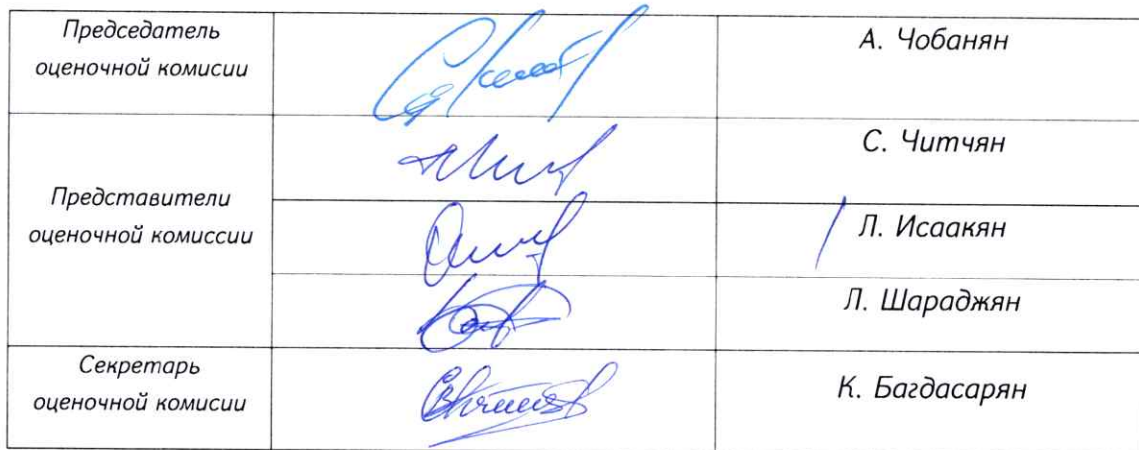 Председатель
оценочной комисии
А. Чобанян
Представители
оценочной комиссии
С. Читчян
Л. Исаакян
Л. Шараджян
Секретарь
оценочной комисии
К. Багдасарян